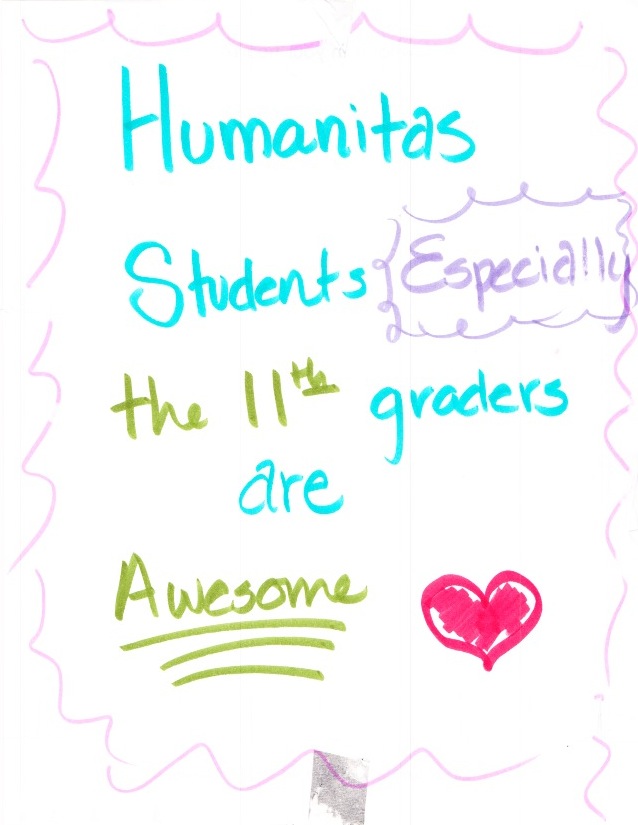 Humanitas
Students Especially
the 11th graders
are
Awesome